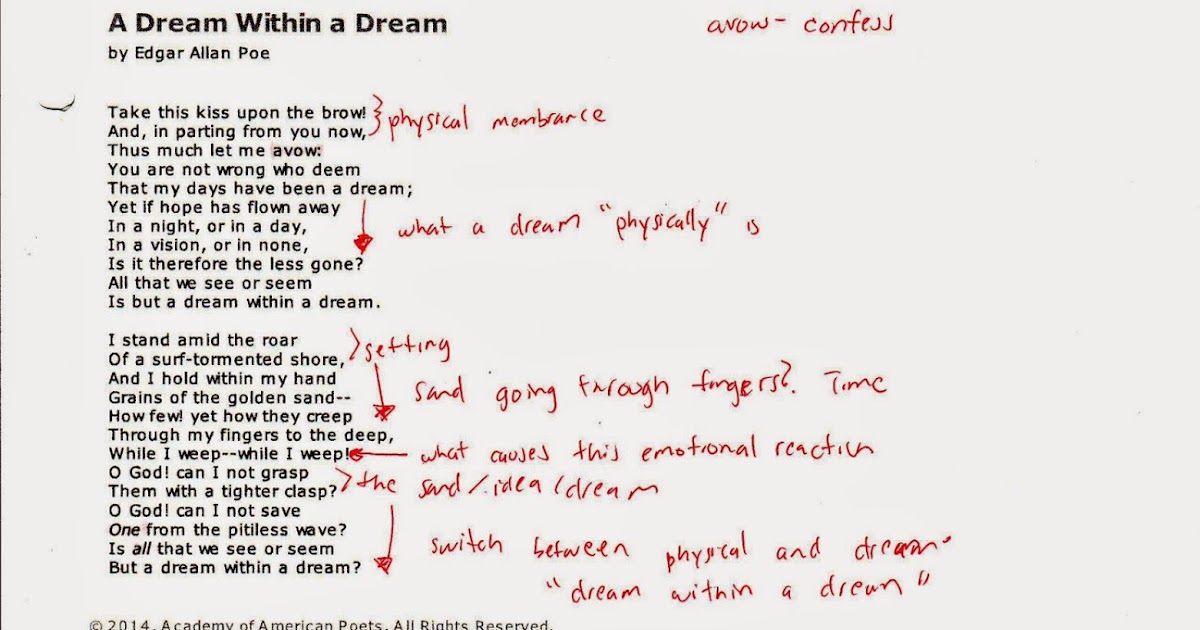 A Dream Within a Dream
avow- confess
by Edgar Allan Poe
Take this kiss upon the brow!
And, in parting from you now,
physical membrance
Thus much let me avow:
You are not wrong who deem
That my days have been a dream;
Yet if hope has flown away
In a night, or in a day,
what a dream "physically" is
In a vision, or in none,
Is it therefore the less gone?
All that we see or seem
Is but a dream within a dream.
I stand amid the roar
Of a surf-tormented shore,
setting
And I hold within my hand
Grains of the golden sand--
sand going through fingers? Time
How few! yet how they creep
Through my fingers to the deep,
While I weep--while I weep!
what causes this emotional reaction
O God! can I not grasp
Them with a tighter clasp?
the sand/idea/dream
O God! can I not save
One from the pitiless wave?
Is all that we see or seem
switch between physical and dream.
But a dream within a dream?
"dream within a dream"
© 2014. Academy of American Poets. All Rights Reserved.